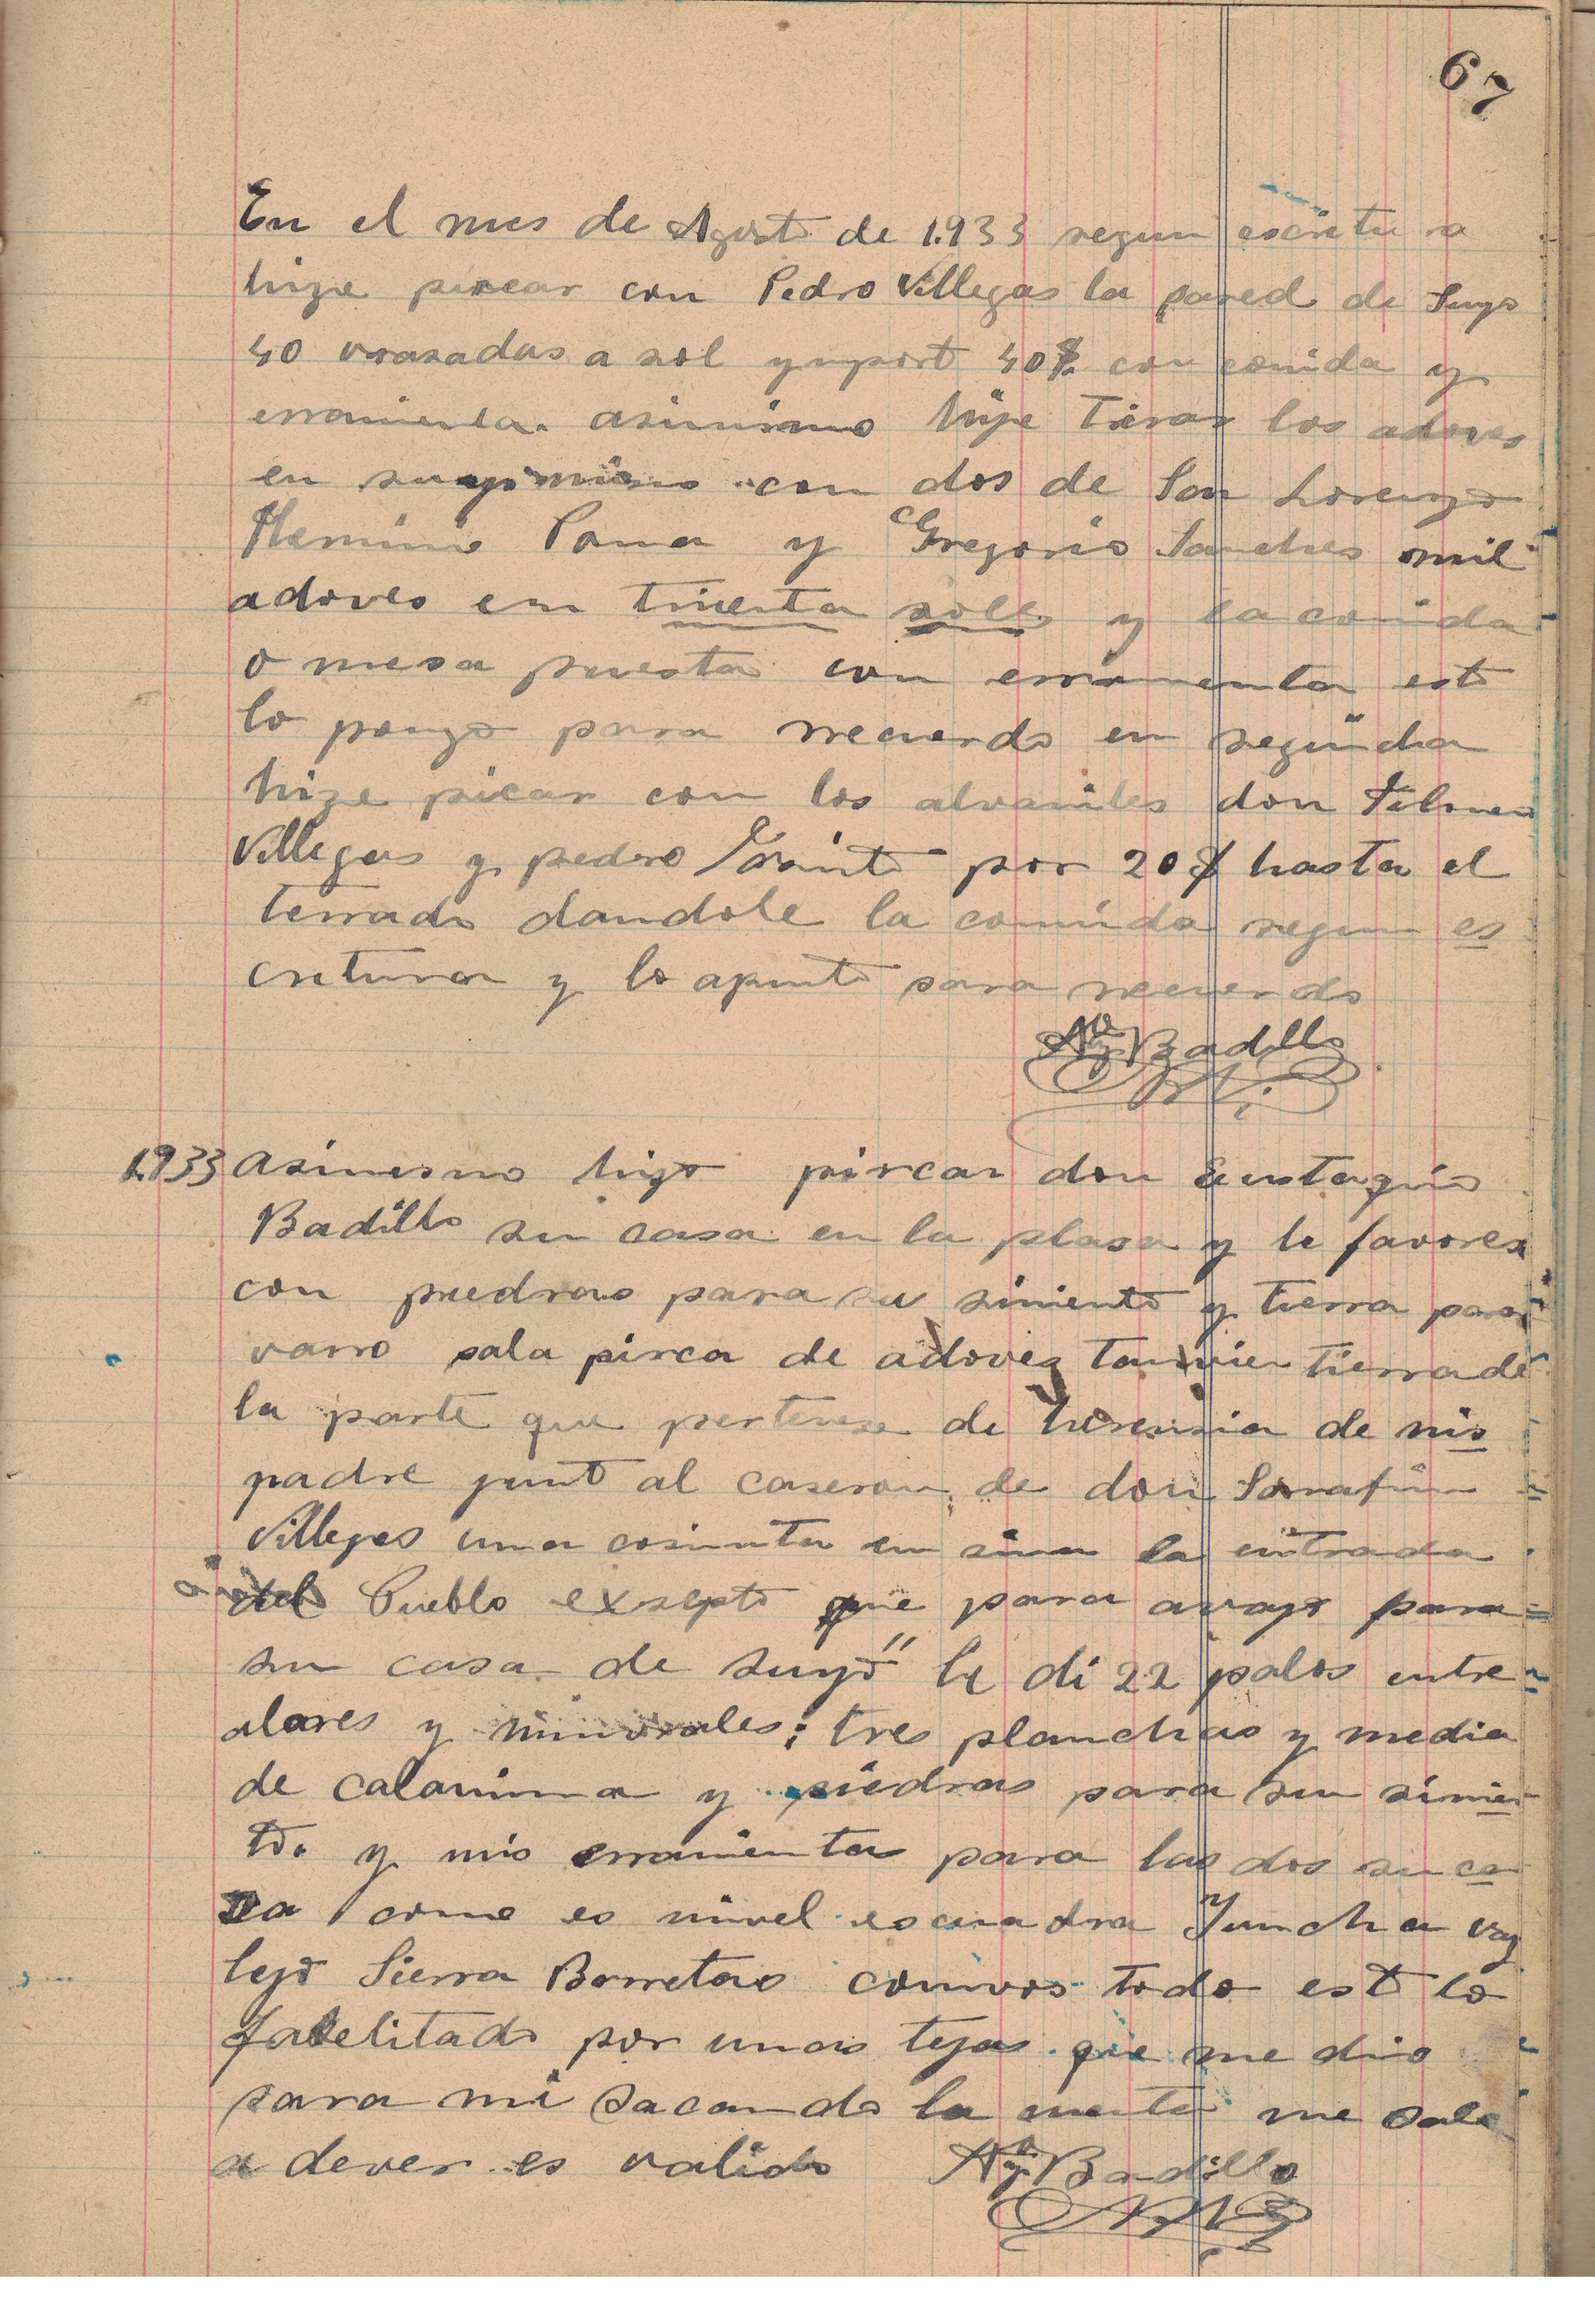 67
En el mes de Agosto de 1.933 segun escritura
hize pircar con Pedro Villegas la pared de Suyo
40 vrasadas a sol y inport 40$ con comida y
erramienta. asimismo hije Tirar los adoves
en suyo mismo con dos de San Lorenzo
Herminio Poma y Gregorio Sanches mil
adoves en trienta soles y la comida
o mesa puesta con erramienta esto
lo pongo para rrecuerdo en seguida
hize picar con los alvaniles don Filmer
Villegas y pedro por 20$ hasta el
terrado dandole la comida segun es
critura y lo apunto para recuerdo
Badillo
1.933 asimesmo hizo pircar don Eustaquio
Badillo su casa en la plasa y le favoresi
con piedras para su simiento y tierra para
varro pala pirca de adoves tanvien tierra de
la parte que pertenese de herensia de mis
padre junto al caseron de don Sarafin
Villegas una cosinita en sima la entrada
del Pueblo exsepto que para avajo para
su casa de suyo" le di 22 palos entre
alares y ; tres planchas y media
de calamina y piedras para su simien
to. y mis erramienta para las dos su ca
sa como es nivel escuadra Yuncha vay
lejo Sierra Barretas convos todo esto lo
fatelitado por unas tejas que me dio
para mi Sacando la cuenta me sale
a dever es valido Badillo